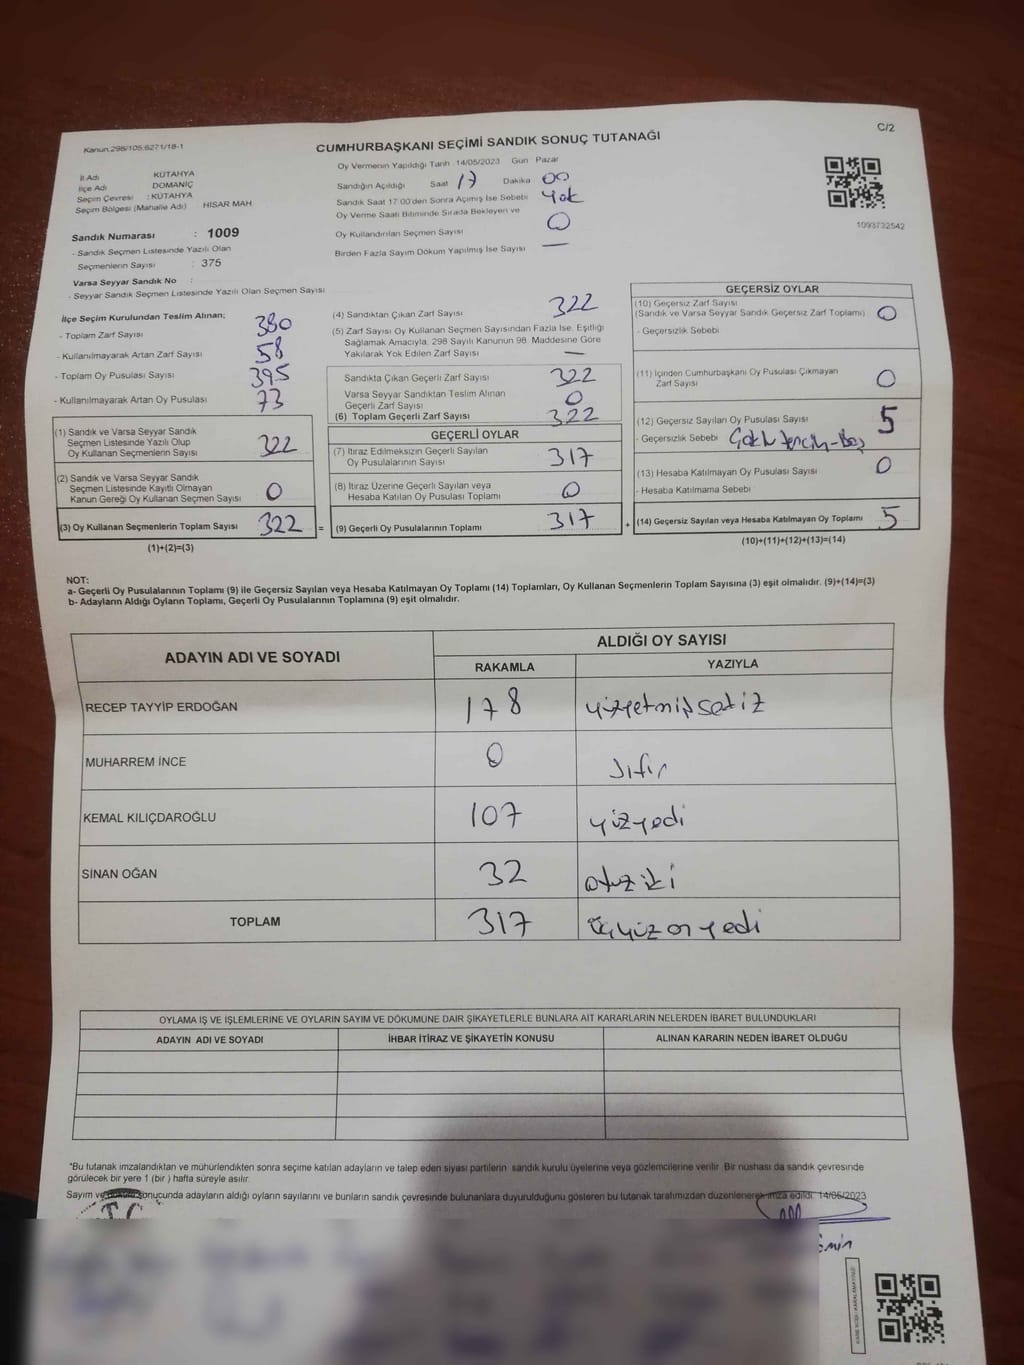 Kanun:298/105;6271/18-1
C/2
CUMHURBAŞKANI SEÇİMİ SANDIK SONUÇ TUTANAĞI
İl Adı KÜTAHYA
İlçe Adı DOMANİÇ
Seçim Çevresi : KÜTAHYA
Seçim Bölgesi (Mahalle Adı) HİSAR MAH
Sandık Numarası : 1009
- Sandık Seçmen Listesinde Yazılı Olan
Seçmenlerin Sayısı : 375
Varsa Seyyar Sandık No :
- Seyyar Sandık Seçmen Listesinde Yazılı Olan Seçmen Sayısı
Oy Vermenin Yapıldığı Tarih :14/05/2023 Gün Pazar
Sandığın Açıldığı Saat 17 Dakika 00
Sandık Saat 17:00'den Sonra Açılmış İse Sebebi Yok
Oy Verme Saati Bitiminde Sırada Bekleyen ve
Oy Kullandırılan Seçmen Sayısı 0
Birden Fazla Sayım Döküm Yapılmış İse Sayısı —
1093732542
İlçe Seçim Kurulundan Teslim Alınan;
- Toplam Zarf Sayısı 380
- Kullanılmayarak Artan Zarf Sayısı 58
- Toplam Oy Pusulası Sayısı 395
- Kullanılmayarak Artan Oy Pusulası 73
(1) Sandık ve Varsa Seyyar Sandık
Seçmen Listesinde Yazılı Olup
Oy Kullanan Seçmenlerin Sayısı 322
(2) Sandık ve Varsa Seyyar Sandık
Seçmen Listesinde Kayıtlı Olmayan
Kanun Gereği Oy Kullanan Seçmen Sayısı 0
(3) Oy Kullanan Seçmenlerin Toplam Sayısı 322 =
(1)+(2)=(3)
(4) Sandıktan Çıkan Zarf Sayısı 322
(5) Zarf Sayısı Oy Kullanan Seçmen Sayısından Fazla İse, Eşitliği
Sağlamak Amacıyla, 298 Sayılı Kanunun 98. Maddesine Göre
Yakılarak Yok Edilen Zarf Sayısı —
Sandıkta Çıkan Geçerli Zarf Sayısı 322
Varsa Seyyar Sandıktan Teslim Alınan
Geçerli Zarf Sayısı 0
(6) Toplam Geçerli Zarf Sayısı 322
GEÇERLİ OYLAR
(7) İtiraz Edilmeksizin Geçerli Sayılan
Oy Pusulalarının Sayısı 317
(8) İtiraz Üzerine Geçerli Sayılan veya
Hesaba Katılan Oy Pusulası Toplamı 0
(9) Geçerli Oy Pusulalarının Toplamı 317 +
GEÇERSİZ OYLAR
(10) Geçersiz Zarf Sayısı
(Sandık ve Varsa Seyyar Sandık Geçersiz Zarf Toplamı) 0
- Geçersizlik Sebebi
(11) İçinden Cumhurbaşkanı Oy Pusulası Çıkmayan
Zarf Sayısı 0
(12) Geçersiz Sayılan Oy Pusulası Sayısı 5
- Geçersizlik Sebebi
(13) Hesaba Katılmayan Oy Pusulası Sayısı 0
- Hesaba Katılmama Sebebi
(14) Geçersiz Sayılan veya Hesaba Katılmayan Oy Toplamı 5
(10)+(11)+(12)+(13)=(14)
NOT:
a- Geçerli Oy Pusulalarının Toplamı (9) ile Geçersiz Sayılan veya Hesaba Katılmayan Oy Toplamı (14) Toplamları, Oy Kullanan Seçmenlerin Toplam Sayısına (3) eşit olmalıdır. (9)+(14)=(3)
b- Adayların Aldığı Oyların Toplamı, Geçerli Oy Pusulalarının Toplamına (9) eşit olmalıdır.
ADAYIN ADI VE SOYADI ALDIĞI OY SAYISI
RAKAMLA YAZIYLA
RECEP TAYYİP ERDOĞAN 178 yüzyetmişsekiz
MUHARREM İNCE 0 sıfır
KEMAL KILIÇDAROĞLU 107 yüzyedi
SİNAN OĞAN 32 otuziki
TOPLAM 317 üçyüzonyedi
OYLAMA İŞ VE İŞLEMLERİNE VE OYLARIN SAYIM VE DÖKÜMÜNE DAİR ŞİKAYETLERLE BUNLARA AİT KARARLARIN NELERDEN İBARET BULUNDUKLARI
ADAYIN ADI VE SOYADI İHBAR İTİRAZ VE ŞİKAYETİN KONUSU ALINAN KARARIN NEDEN İBARET OLDUĞU
*Bu tutanak imzalandıktan ve mühürlendikten sonra seçime katılan adayların ve talep eden siyasi partilerin sandık kurulu üyelerine veya gözlemcilerine verilir. Bir nüshası da sandık çevresinde
görülecek bir yere 1 (bir) hafta süreyle asılır.
Sayım ve döküm sonucunda adayların aldığı oyların sayılarını ve bunların sandık çevresinde bulunanlara duyurulduğunu gösteren bu tutanak tarafımızdan düzenlenerek imza edildi. 14/05/2023
T.C.